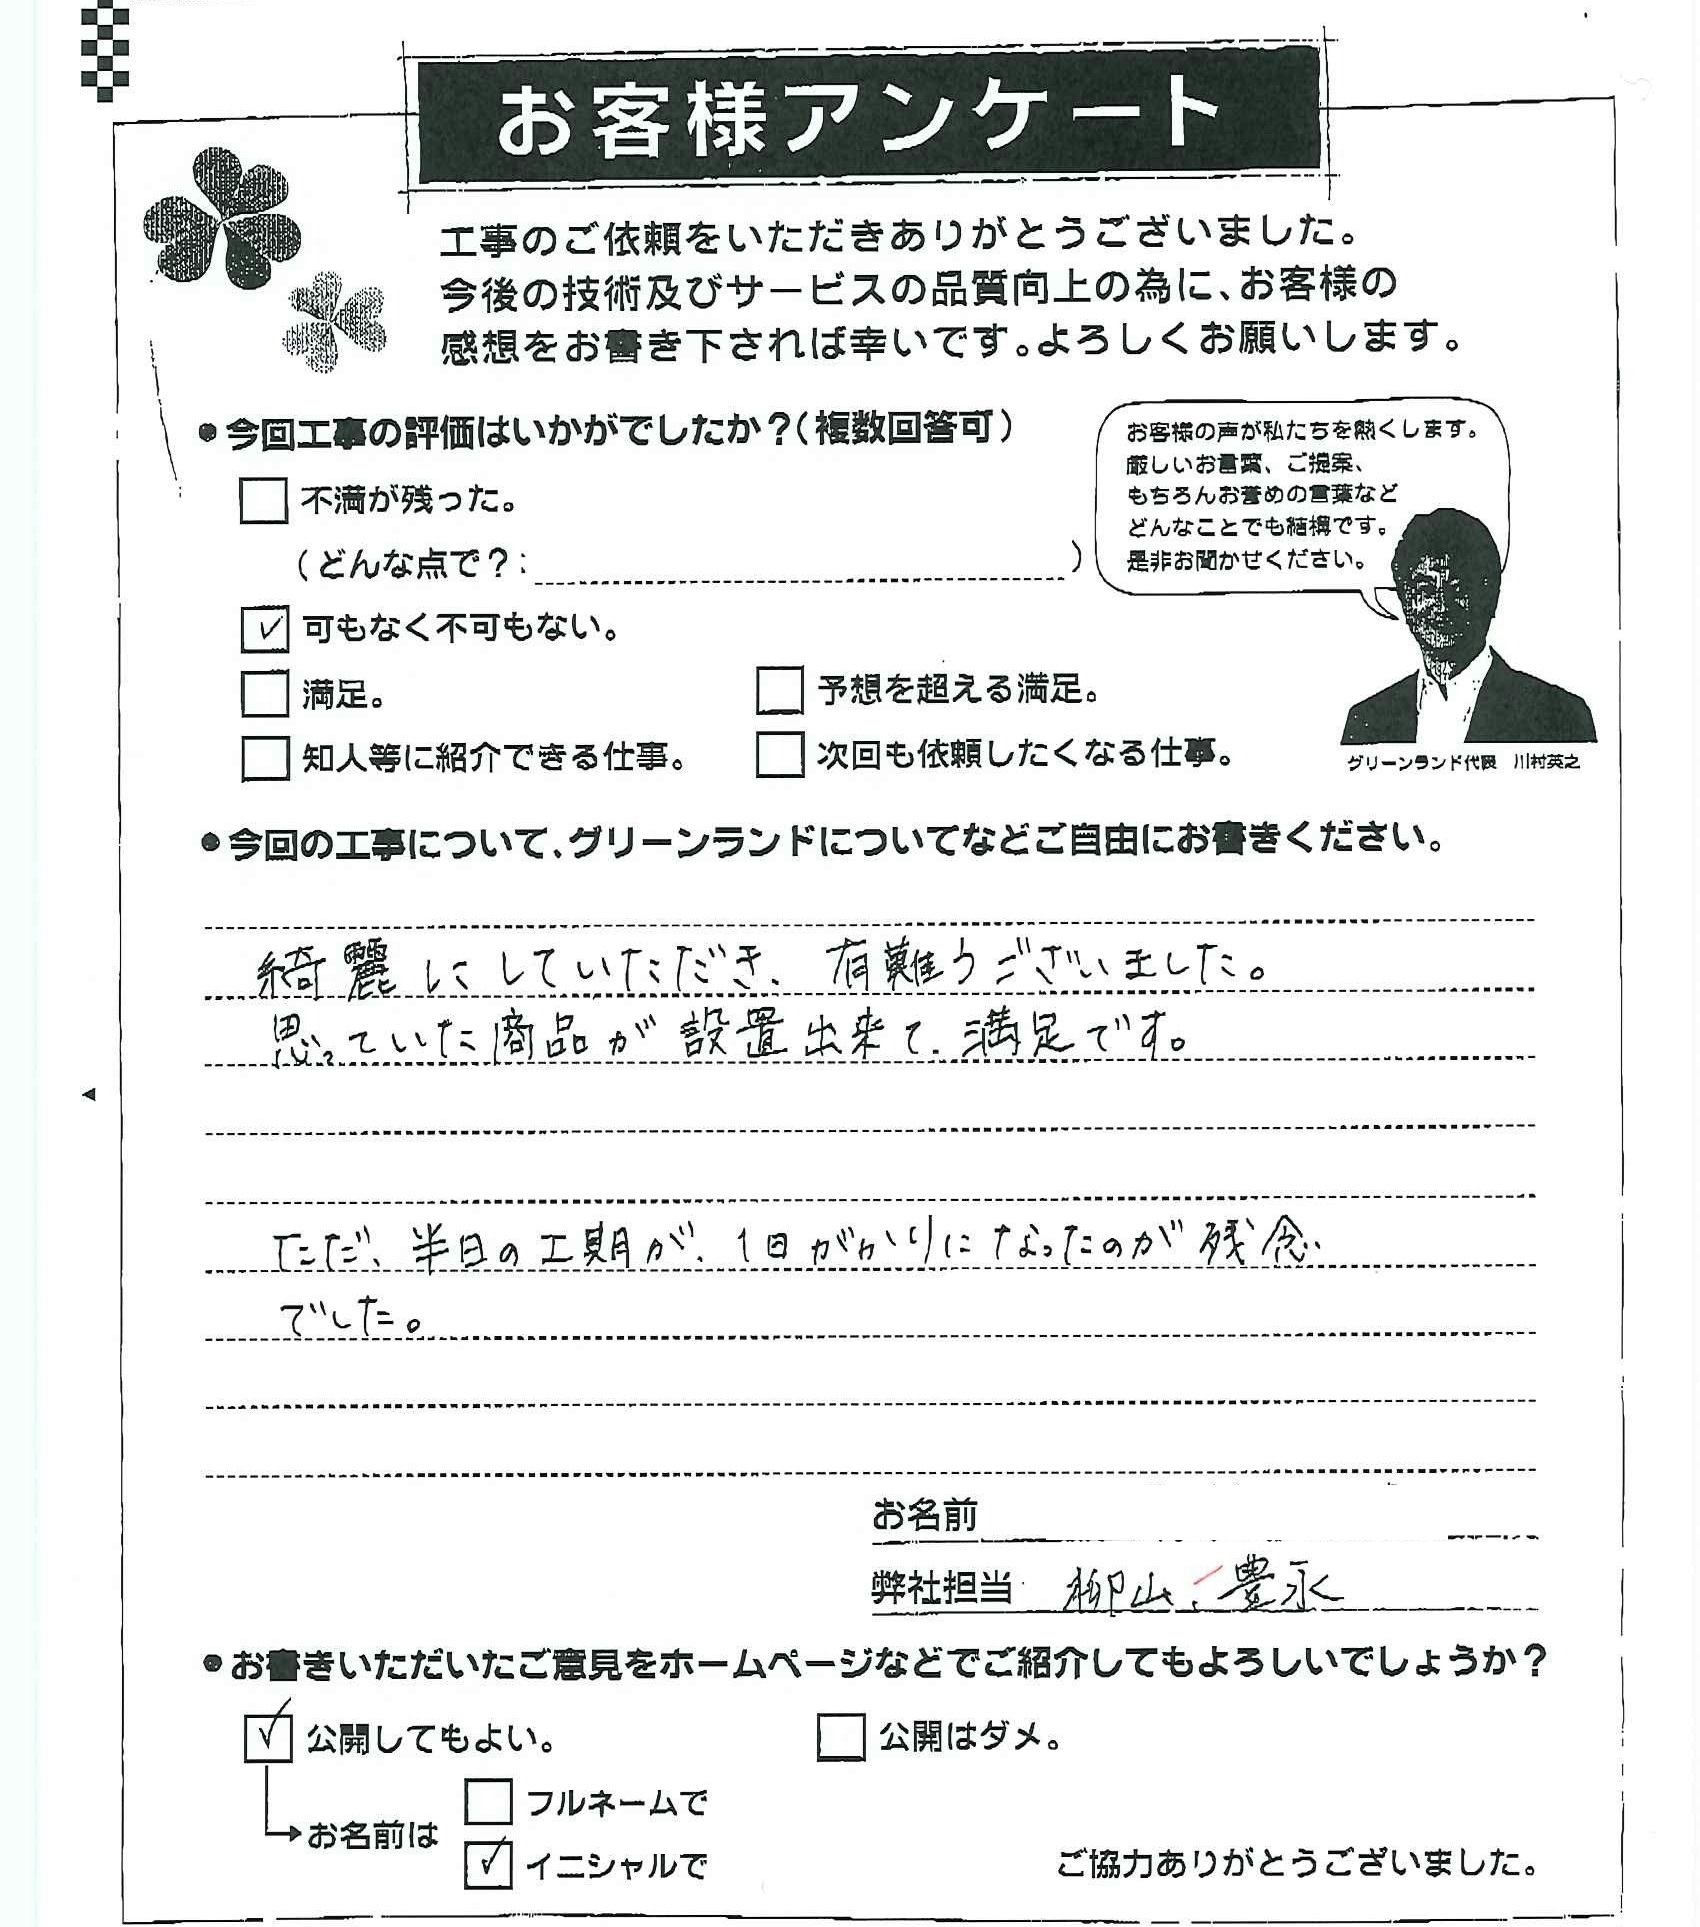 お客様アンケート
工事のご依頼をいただきありがとうございました。
今後の技術及びサービスの品質向上の為に、お客様の
感想をお書き下されば幸いです。よろしくお願いします。
●今回工事の評価はいかがでしたか？（複数回答可）
お客様の声が私たちを熱くします。
厳しいお言葉、ご提案、
もちろんお誉めの言葉など
どんなことでも結構です。
是非お聞かせください。
不満が残った。
（どんな点で？：　）
可もなく不可もない。
満足。
予想を超える満足。
知人等に紹介できる仕事。
次回も依頼したくなる仕事。
グリーンランド代表　川村英之
●今回の工事について、グリーンランドについてなどご自由にお書きください。
綺麗にしていただき、有難うございました。
思っていた商品が設置出来て、満足です。
ただ、半日の工期が、1日がかりになったのが残念
でした。
お名前
弊社担当　柳山、豊永
●お書きいただいたご意見をホームページなどでご紹介してもよろしいでしょうか？
公開してもよい。
公開はダメ。
フルネームで
お名前は
イニシャルで
ご協力ありがとうございました。